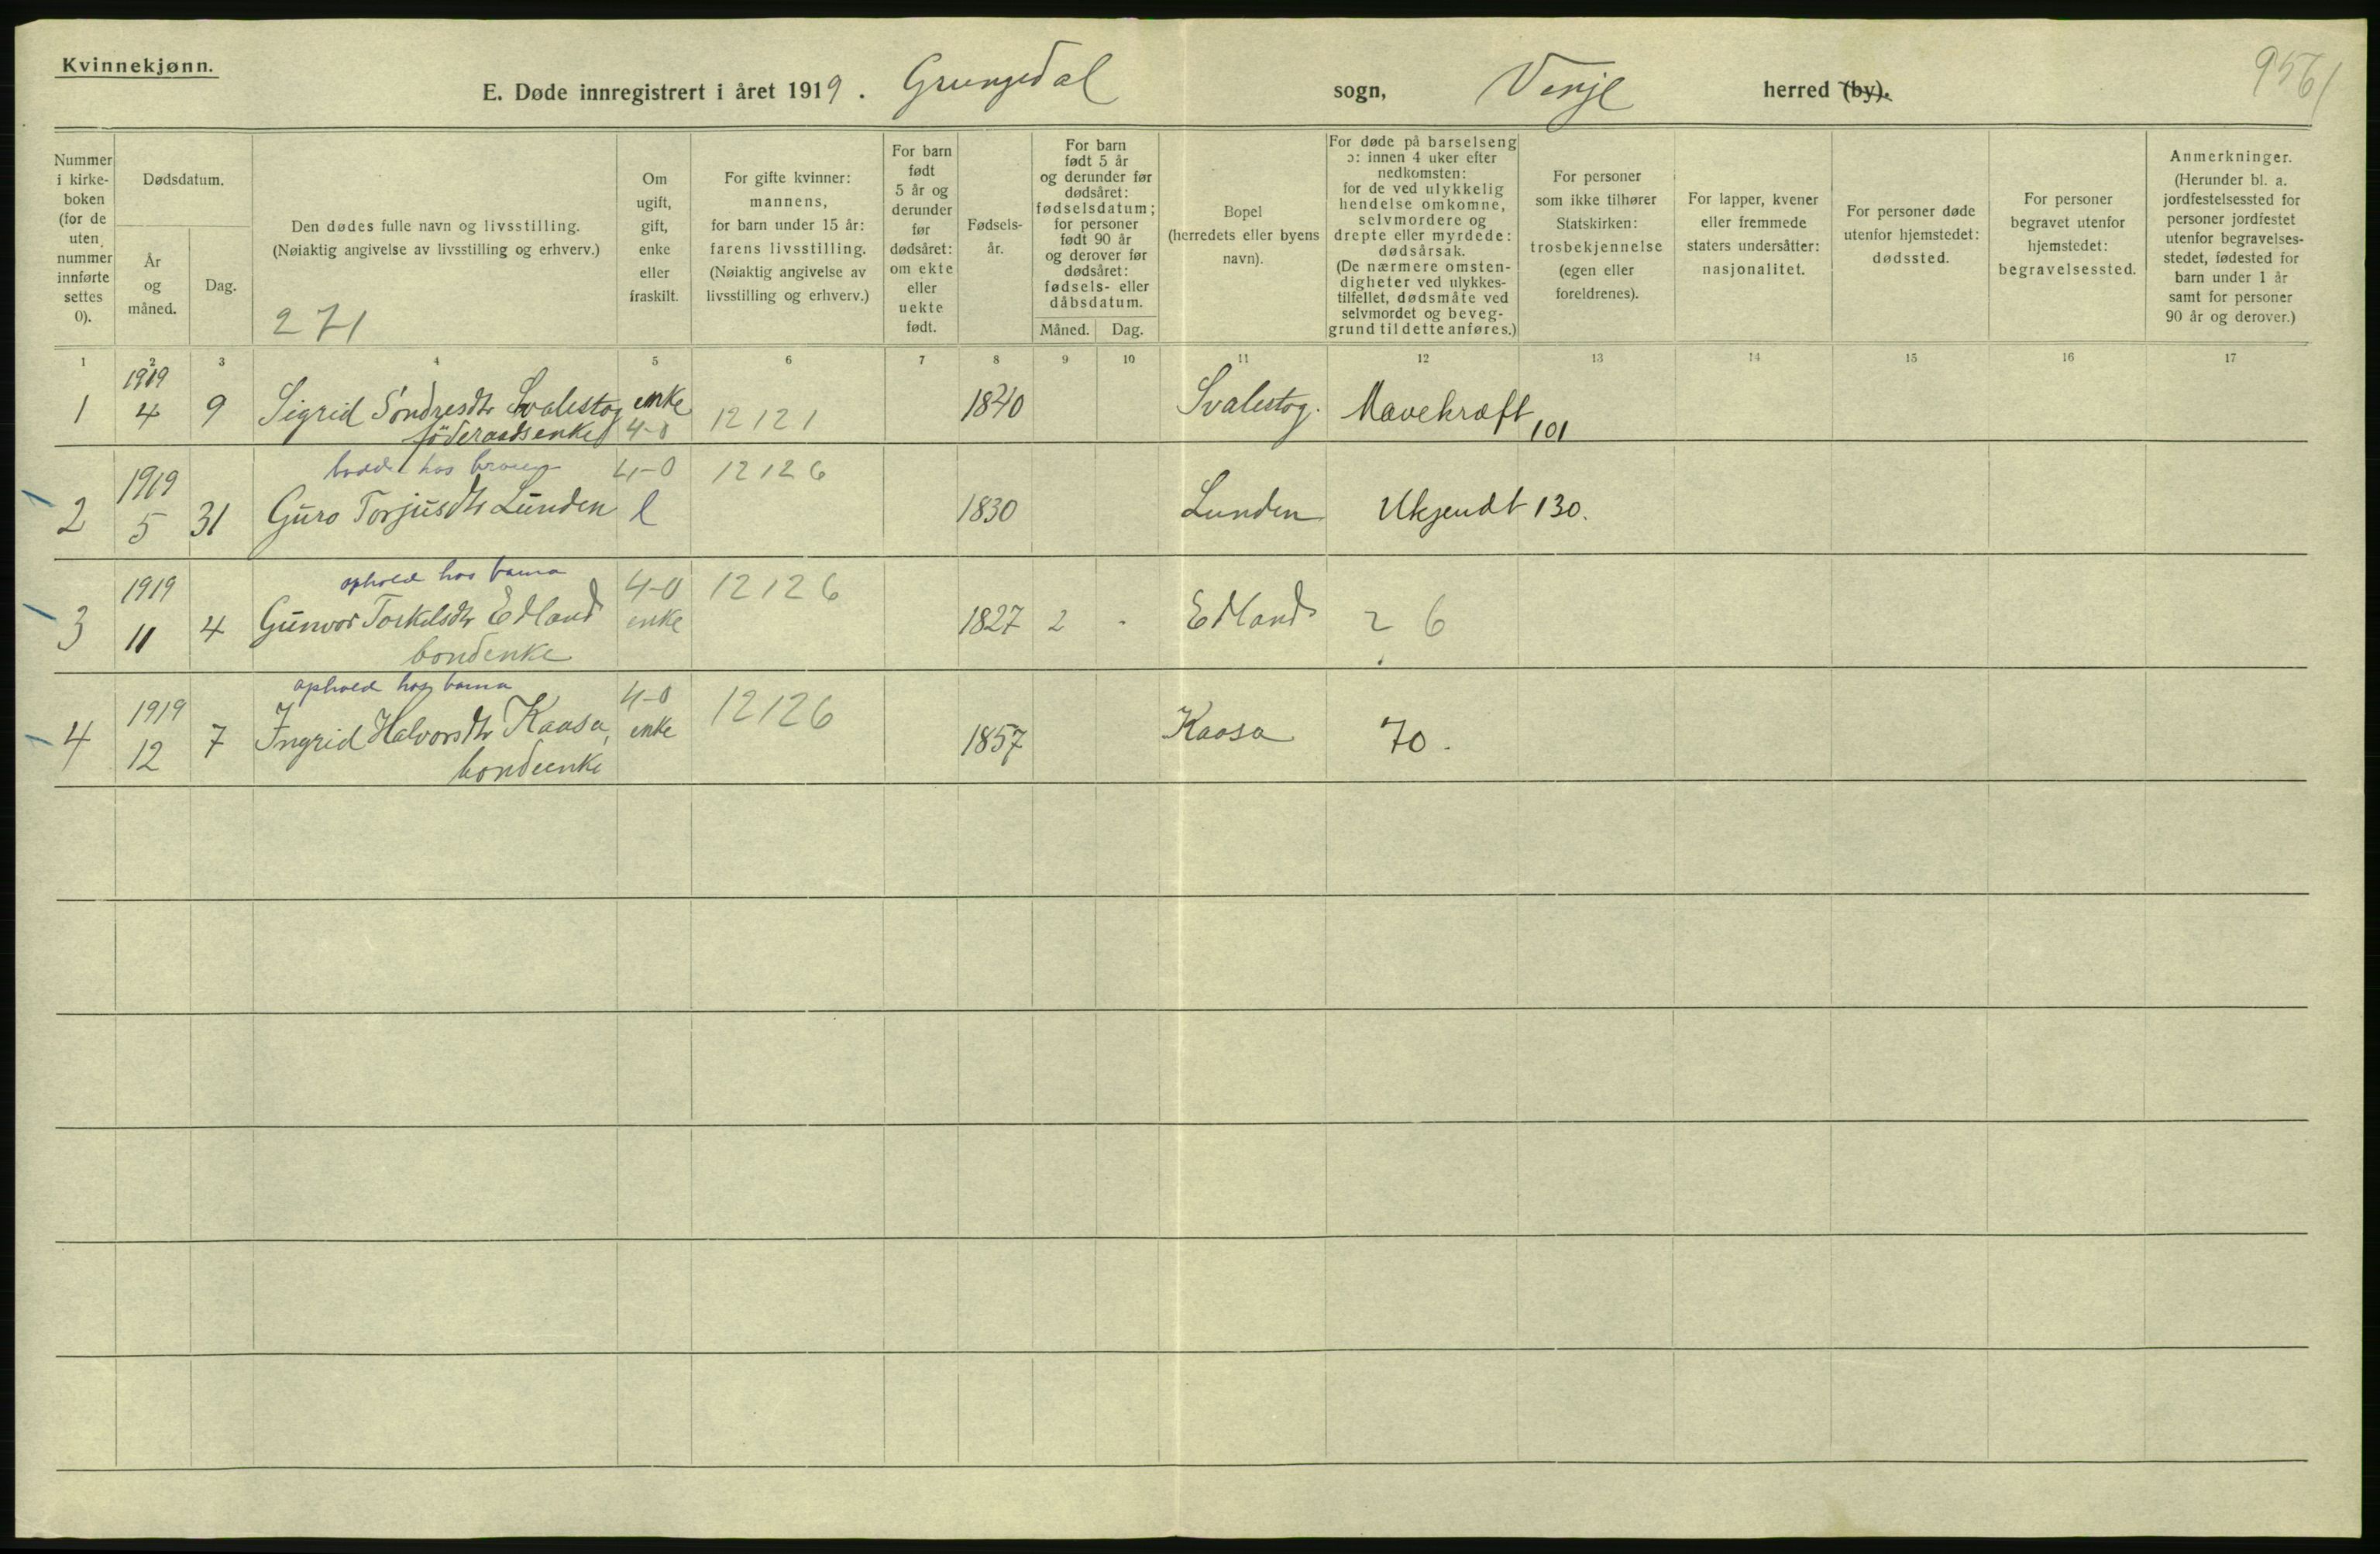 Kvinnekjønn.
E. Døde innregistrert i året 1919. Grungedal sogn, Vinje herred (by).
956/
Nummer i kirkeboken (for de uten nummer innførte settes 0).
Dødsdatum.
År og måned.
Dag.
Den dødes fulle navn og livsstilling.
(Nøiaktig angivelse av livsstilling og erhverv.)
271
Om ugift, gift, enke eller fraskilt.
For gifte kvinner: mannens, for barn under 15 år: farens livsstilling. (Nøiaktig angivelse av livsstilling og erhverv.)
For barn født 5 år og derunder før dødsåret: om ekte eller uekte født.
Fødselsår.
For barn født 5 år og derunder før dødsåret: fødselsdatum; for personer født 90 år og derover før dødsåret: fødsels- eller dåbsdatum.
Måned. Dag.
Bopel (herredets eller byens navn).
For døde på barselseng ɔ: innen 4 uker efter nedkomsten: for de ved ulykkelig hendelse omkomne, selvmordere og drepte eller myrdede: dødsårsak. (De nærmere omstendigheter ved ulykkestilfellet, dødsmåte ved selvmordet og beveggrund til dette anføres.)
For personer som ikke tilhører Statskirken: trosbekjennelse (egen eller foreldrenes).
For lapper, kvener eller fremmede staters undersåtter: nasjonalitet.
For personer døde utenfor hjemstedet: dødssted.
For personer begravet utenfor hjemstedet: begravelsessted.
Anmerkninger. (Herunder bl. a. jordfestelsessted for personer jordfestet utenfor begravelsesstedet, fødested for barn under 1 år samt for personer 90 år og derover.)
1 2 3 4 5 6 7 8 9 10 11 12 13 14 15 16 17
1919
1 4 9 Sigrid Sondresdtr Svalestog enke 12121 1840 Svalestog. Mavekræft 101
föderaadsenke 4-0
hos 4-0 12126
1919
2 5 31 Guro Torjusdtr Lunden l 1830 Lunden Ukjendt 130.
ophold hos barna 4-0 12126
1919
3 11 4 Gunvor Torkilsdtr Edland enke 1827 2 - Edland 2 6
bondenke
ophold hos barna 4-0 12126
1919
4 12 7 Ingrid Halvorsdtr Kaasa, enke 1857 Kaasa 70.
bondeenke